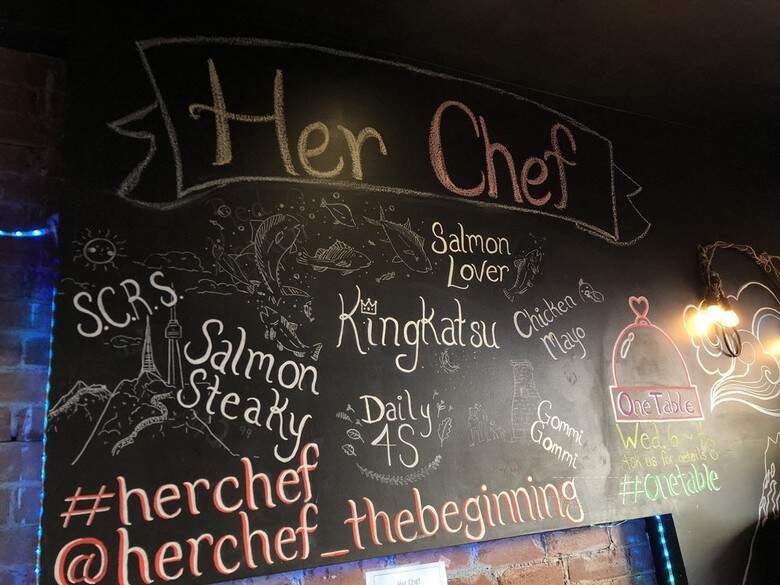 Her Chef
Salmon
Lover
S.C.R.S.
KingKatsu
Chicken
Mayo
Salmon
Steaky
Daily
4S
Gommi
Gommi
One Table
Wed. 6~
Ask us for details
#onetable
#herchef
@herchef_thebeginning
Her Chef